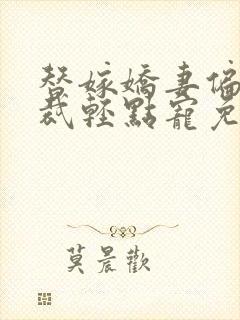 替嫁嬌妻偏
裁輕點寵兒
莫晨歡